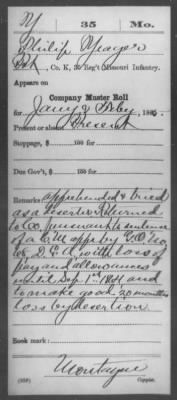 35 Mo.
Philip
Pvt, Co. K, 35 Reg't Missouri Infantry.
Appears on
Company Muster Roll
for Jany & Feby, 1865.
Present or absent Present
Stoppage, $ 100 for
Due Gov't, $ 100 for
Remarks apprehended & tried
as a deserter & returned
to Co. pursuant to sentence
of a C M appr by G.O. No
D. E. A. with loss of
pay and allowances
until Sep 1st 1864 and
to make good 20 months
loss by desertion.
Book mark:
(358) Copyist.